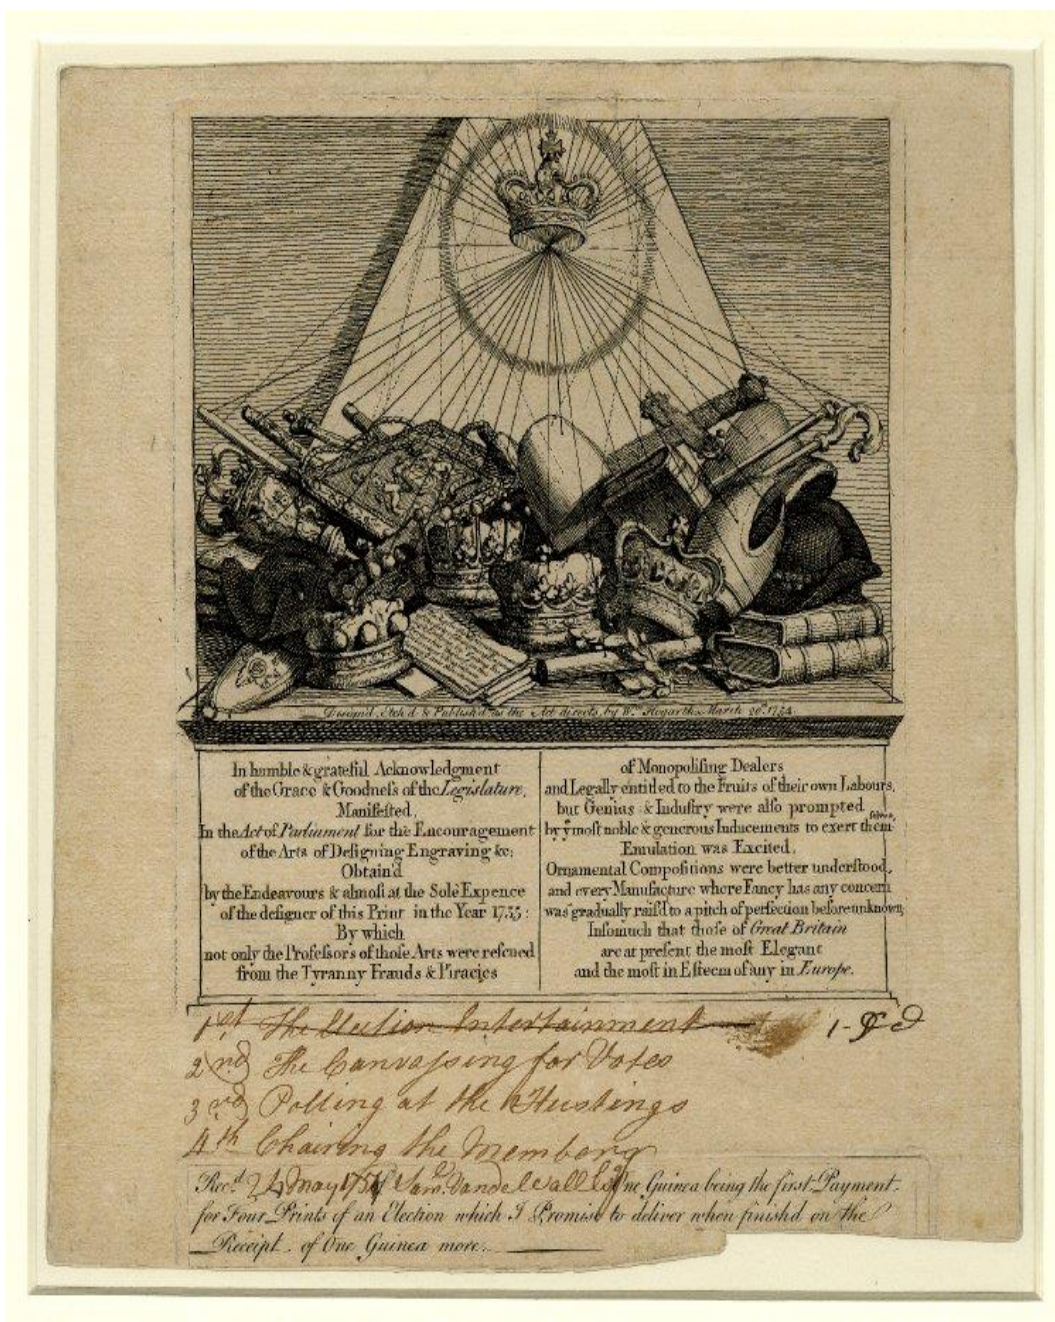 Design'd, Etch'd & Publish'd as the Act directs, by Wm. Hogarth, March 20th. 1754.
In humble & grateful Acknowledgment
of the Grace & Goodneſs of the Legislature,
Manifeſted,
In the Act of Parliament for the Encouragement
of the Arts of Deſigning Engraving &c;
Obtain'd
by the Endeavours & almoſt at the Sole Expence
of the deſigner of this Print in the Year 1735:
By which
not only the Profeſsors of thoſe Arts were reſcued
from the Tyranny Frauds & Piracies
of Monopoliſing Dealers
and Legally entitled to the Fruits of their own Labours,
but Genius & Induſtry were alſo prompted
by yͤ moſt noble & generous Inducements to exert themſelves,
Emulation was Excited,
Ornamental Compoſitions were better underſtood,
and every Manufacture where Fancy has any concern
was gradually raiſ'd to a pitch of perfection before unknown;
Inſomuch that thoſe of Great Britain
are at preſent the moſt Elegant
and the moſt in Eſteem of any in Europe.
1st The Election Entertainment
2nd The Canvaſsing for Votes
3rd Polling at the Hustings
4th Chairing the Members
Rec.d 24 May 1754 of Saml. Vandewall Esq One Guinea being the first Payment
for Four Prints of an Election which I Promise to deliver when finish'd on the
Receipt of One Guinea more.